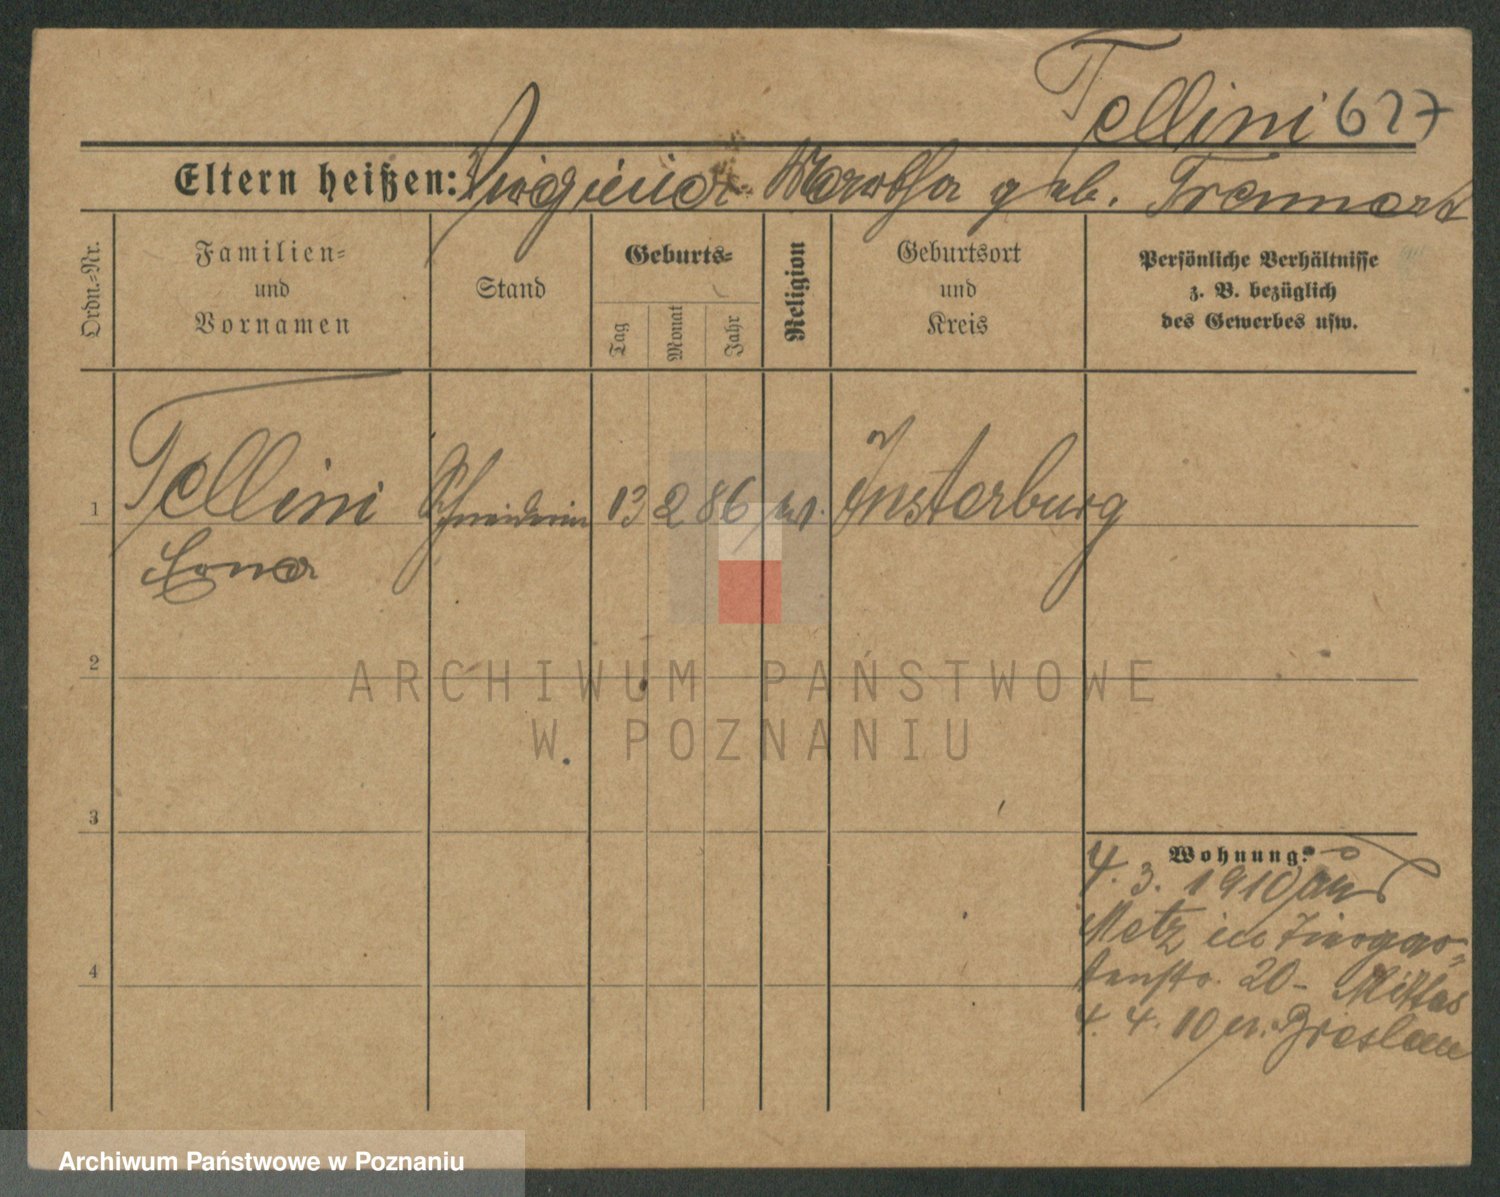 Tellini 627
Eltern heißen: Martha geb.
Ordn.-Nr.
Familien-
und
Vornamen
Stand
Geburts-
Tag
Monat
Jahr
Religion
Geburtsort
und
Kreis
Persönliche Verhältnisse
z. B. bezüglich
des Gewerbes usw.
1 Tellini Schneiderin 13 2 86 Insterburg
Erna
2
ARCHIWUM PAŃSTWOWE
W POZNANIU
3
Wohnung:
4. 3. 1910 aus
Metz in
4
20 -
4. 4. 10 n. Breslau
Archiwum Państwowe w Poznaniu